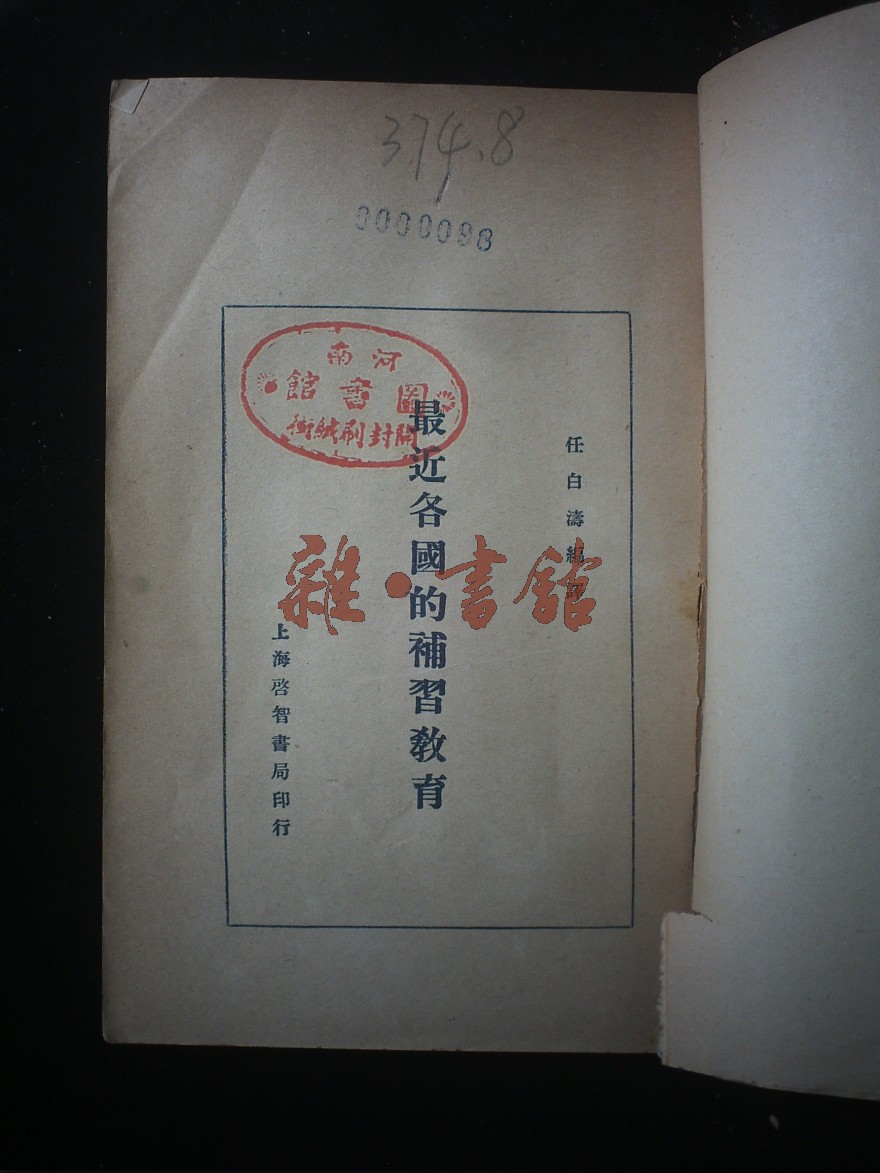 374.8
0000098
河南
圖書館
開封刷絨街
任白濤編譯
最近各國的補習教育
上海啓智書局印行
雜·書館